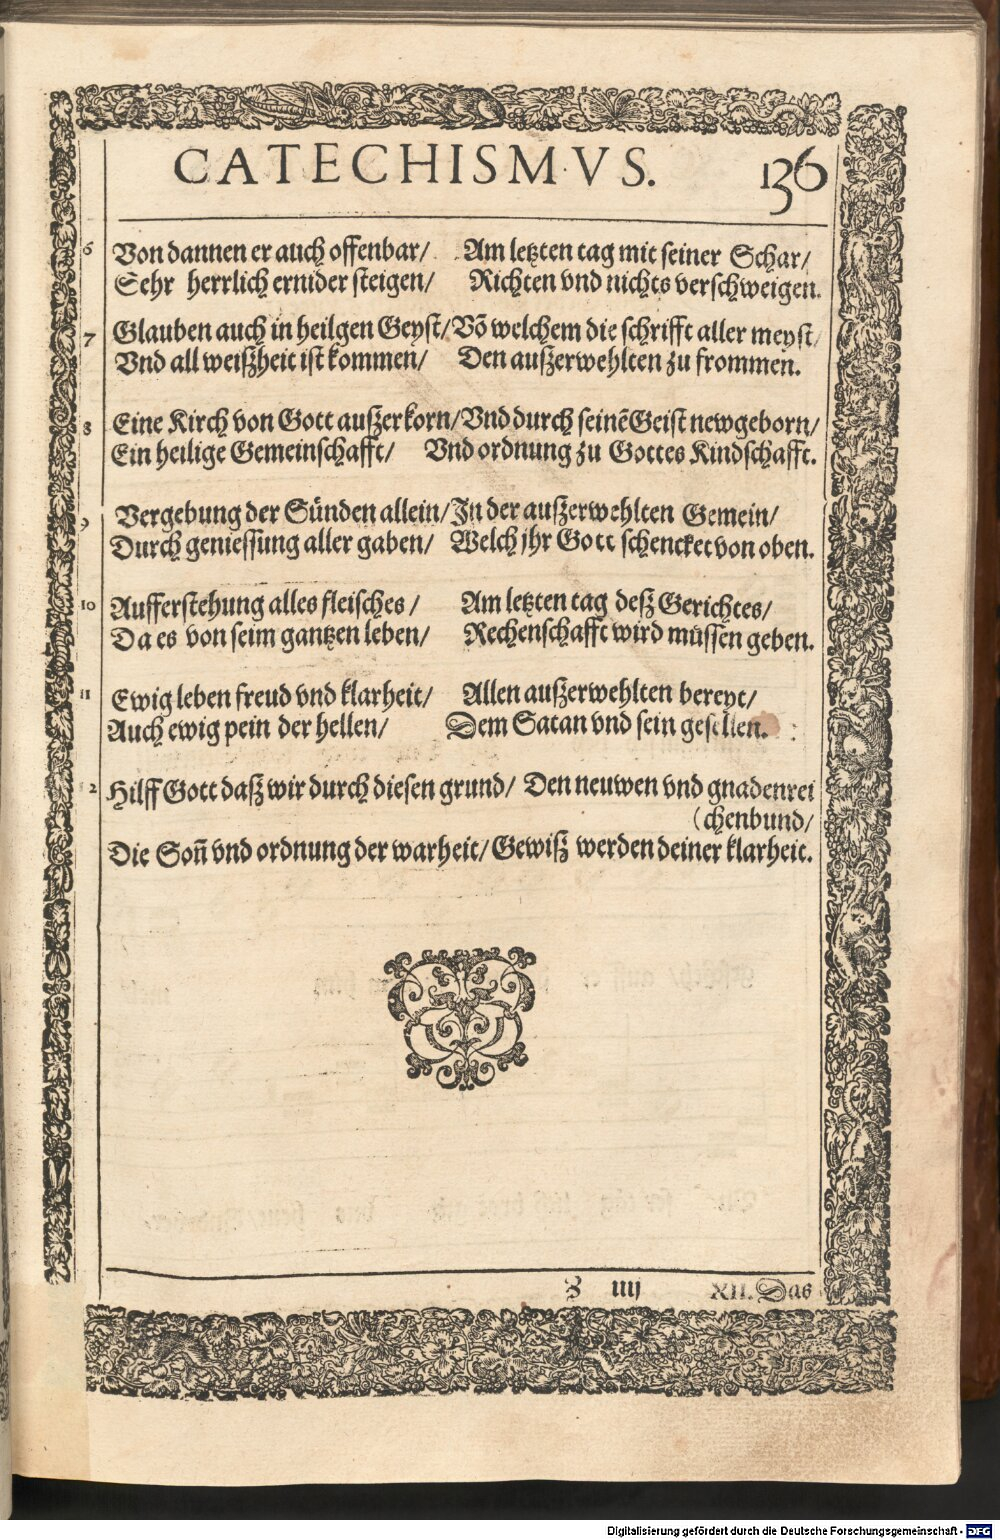 CATECHISMVS. 136
6 Von dannen er auch offenbar/ Am letzten tag mit seiner Schar/
Sehr herrlich ernider steigen/ Richten vnd nichts verschweigen.
7 Glauben auch in heilgen Geyst/ Võ welchem die schrifft aller meyst/
Vnd all weißheit ist kommen/ Den außerwehlten zu frommen.
8 Eine Kirch von Gott außerkorn/ Vnd durch seinẽ Geist newgeborn/
Ein heilige Gemeinschafft/ Vnd ordnung zu Gottes Kindschafft.
9 Vergebung der Sünden allein/ In der außerwehlten Gemein/
Durch geniessung aller gaben/ Welch jhr Gott schencket von oben.
10 Aufferstehung alles fleisches/ Am letzten tag deß Gerichtes/
Da es von seim gantzen leben/ Rechenschafft wird müssen geben.
11 Ewig leben freud vnd klarheit/ Allen außerwehlten bereyt/
Auch ewig pein der hellen/ Dem Satan vnd sein gesellen.
12 Hilff Gott daß wir durch diesen grund/ Den neuwen vnd gnadenrei
(chenbund/
Die Soñ vnd ordnung der warheit/ Gewiß werden deiner klarheit.
iiij XII. Das
Digitalisierung gefördert durch die Deutsche Forschungsgemeinschaft - DFG